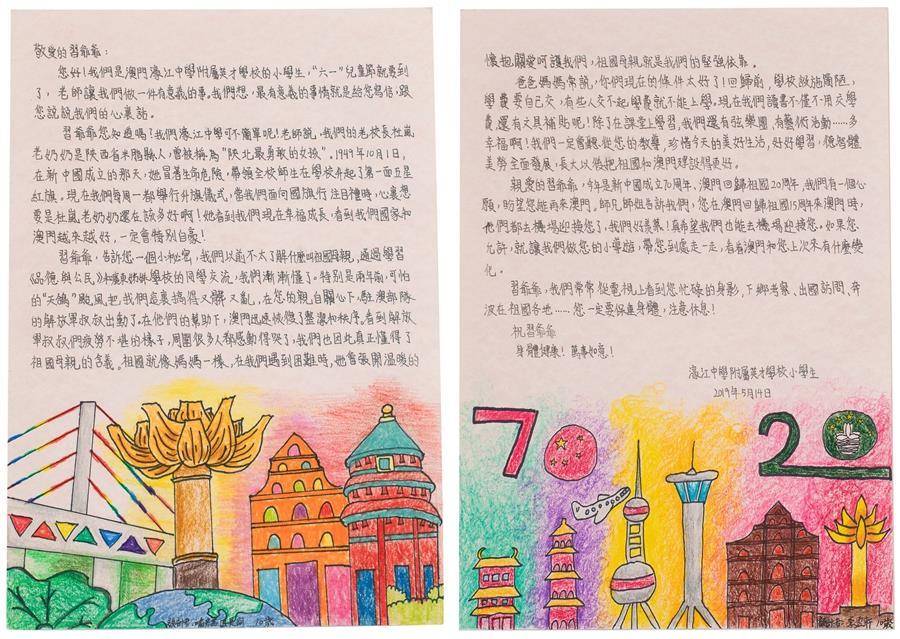 敬愛的習爺爺：
您好！我們是澳門濠江中學附屬英才學校的小學生，“六一”兒童節就要到
了，老師讓我們做一件有意義的事。我們想，最有意義的事情就是給您寫信，跟
您說說我們的心裏話。
習爺爺您知道嗎！我們濠江中學可不簡單呢！老師說，我們的老校長杜嵐
老奶奶是陝西省米脂縣人，曾被稱為“陝北最勇敢的女孩”。1949年10月1日，
在新中國成立的那天，她冒着生命危險，帶領全校師生在學校升起了第一面五星
紅旗。現在我們每周一都舉行升旗儀式，當我們面向國旗行注目禮時，心裏想
要是杜嵐老奶奶還在該多好啊！她看到我們現在幸福成長，看到我們國家和
澳門越來越好，一定會特別自豪！
習爺爺，告訴您一個小秘密，我們以前不太了解什麼叫祖國母親，通過學習
《品德與公民》學校的同學交流，我們漸漸懂了。特別是兩年前，可怕
的“天鴿”颱風把，我們這裏搞得又髒又亂，在您的親自關心下，駐澳部隊
的解放軍叔叔出動了。在他們的幫助下，澳門迅速恢復了整潔和秩序。看到解放
軍叔叔們疲勞不堪的樣子，周圍很多人都感動得哭了，我們也因此真正懂得了
祖國母親的含義。祖國就像媽媽一樣，在我們遇到困難時，她會張開溫暖的
懷抱關愛呵護我們，祖國母親就是我們的堅強依靠。
爸爸媽媽常說，你們現在的條件太好了！回歸前，學校設施簡陋，
學費要自己交，有些人交不起學費就不能上學。現在我們讀書不僅不用交學
費，還有文具補貼呢！除了在課堂上學習，我們還有弦樂團，有藝術活動……多
幸福啊！我們一定會聽從您的教導，珍惜今天的美好生活，好好學習，德智體
美勞全面發展，長大以後把祖國和澳門建設得更好。
親愛的習爺爺，今年是新中國成立70周年、澳門回歸祖國20周年，我們有一個心
願，盼望您能再來澳門。師兄師姐告訴我們，您在澳門回歸祖國15周年來澳門時，
他們都去機場迎接您了，我們好羨慕！真希望我們也能去機場迎接您。如果您
允許，就讓我們做您的小導遊，帶您到處走一走，看看澳門和您上次來有什麼變
化。
習爺爺，我們常常從電視上看到您忙碌的身影，下鄉考察、出國訪問、奔
波在祖國各地……您一定要保重身體，注意休息！
祝習爺爺
身體健康！萬事如意！
濠江中學附屬英才學校小學生
2019年5月14日
70
20
10歲
10歲